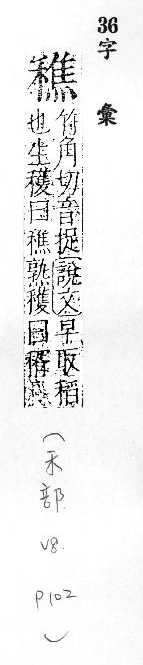 36
字彙
穛
竹角切音捉說文早取稻
也生穫曰穛熟穫曰稰
(禾部 V8. P102)